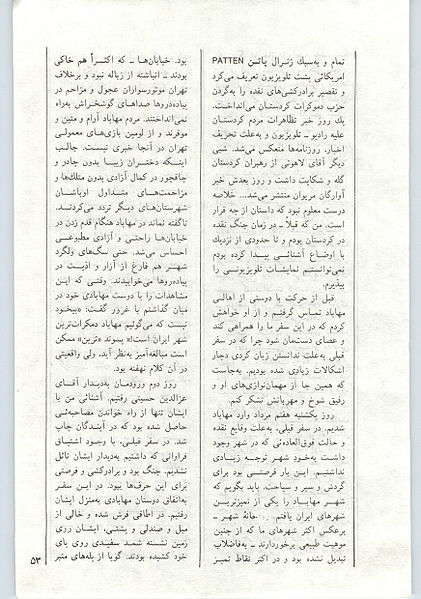 تمام و به‌سبك ژنرال پاتن PATTEN
امریکائی پشت تلویزیون تعریف می‌کرد
و تقصیر برادرکشی‌های نقده را به‌گردن
حزب دموکرات کردستان می‌انداخت.
یك روز خبر تظاهرات مردم کردستان
علیه رادیو ـ تلویزیون و به‌علت تحریف
اخبار، روزنامه‌ها منعکس می‌شد. شبی
دیگر آقای لاهوتی از رهبران کردستان
گله و شکایت داشت و روز بعدش خبر
آوارگان مریوان منتشر می‌شد... خلاصه
درست معلوم نبود که داستان از چه قرار
است. من که قبلاً ـ در زمان جنگ نقده
در کردستان بودم و تا حدودی از نزدیك
با اوضاع آشنائی پیدا کرده بودم
نمی‌توانستم نمایشات تلویزیونی را
بپذیرم.
قبل از حرکت با دوستی از اهالی
مهاباد تماس گرفتم و از او خواهش
کردم که در این سفر ما را همراهی کند
و عصای دست‌مان شود چرا که در سفر
قبلی به‌علت ندانستن زبان کردی دچار
اشکالات زیادی شده بودیم. به‌جاست
که همین جا از مهمان‌نوازی‌های او و
رفیق شوخ و مهربانش تشکر کنم.
روز یکشنبه هفتم مرداد وارد مهاباد
شدیم. در سفر قبلی، به‌علت وقایع نقده
و حالت فوق‌العاده‌ئی که در شهر وجود
داشت به‌خود شهر توجه زیادی
نداشتیم. این بار فرصتی بود برای
گردش و سیر و سیاحت. باید بگویم که
شهر مهاباد را یکی از تمیزترین
شهرهای ایران یافتم. شهر ـ
برعکس اکثر شهرهای ما که از چنین
موهبت طبیعی برخوردارند ـ به‌فاضلاب
تبدیل نشده بود و در اکثر نقاط تمیز
بود. خیابان‌ها ـ که اکثراً هم خاکی
بودند ـ انباشته از زباله نبود و برخلاف
تهران موتورسواران عجول و مزاحم در
پیاده‌روها صداهای گوشخراش به‌راه
نمی‌انداختند. مردم مهاباد آرام و متین و
موقرند و از لومین بازی‌های معمولی
تهران در آنجا خبری نیست. جالب
اینکه دختران زیبا بدون چادر و
چاقچور در کمال آزادی بدون متلك‌ها و
مزاحمت‌های متداول اوباشان
شهرستان‌های دیگر تردد می‌کردند.
ناگفته نماند در مهاباد هنگام قدم زدن در
خیابان‌ها راحتی و آزادی مطبوعی
احساس می‌شد. حتی سگ‌های ولگرد
شهر هم فارغ از آزار و اذیت در
پیاده‌روها می‌خوابیدند. وقتی که این
مشاهدات را با دوست مهابادی خود در
میان گذاشتم با غرور گفت: «بیخود
نیست که می‌گوئیم مهاباد دمکرات‌ترین
شهر ایران است» پسوند «ترین» ممکن
است مبالغه‌آمیز به‌نظر آید، ولی واقعیتی
در آن کلام نهفته بود.
روز دوم ورودمان به‌دیدار آقای
عزالدین حسینی رفتیم. آشنائی من با
ایشان تنها از راه خواندن مصاحبه‌ئی
حاصل شده بود که در آیندگان چاپ
شد. در سفر قبلی، با وجود اشتیاق
فراوانی که داشتیم به‌دیدار ایشان نائل
نشدیم. جنگ بود و برادرکشی و فرصتی
برای این حرف‌ها نبود. در این سفر
به‌اتفاق دوستان مهابادی به‌منزل ایشان
رفتیم. در اطاقی فرش شده و خالی از
مبل و صندلی و پشتی، ایشان روی
زمین نشسته شمد سفیدی روی پای
خود کشیده بودند. گویا از پله‌های منبر
۵۳